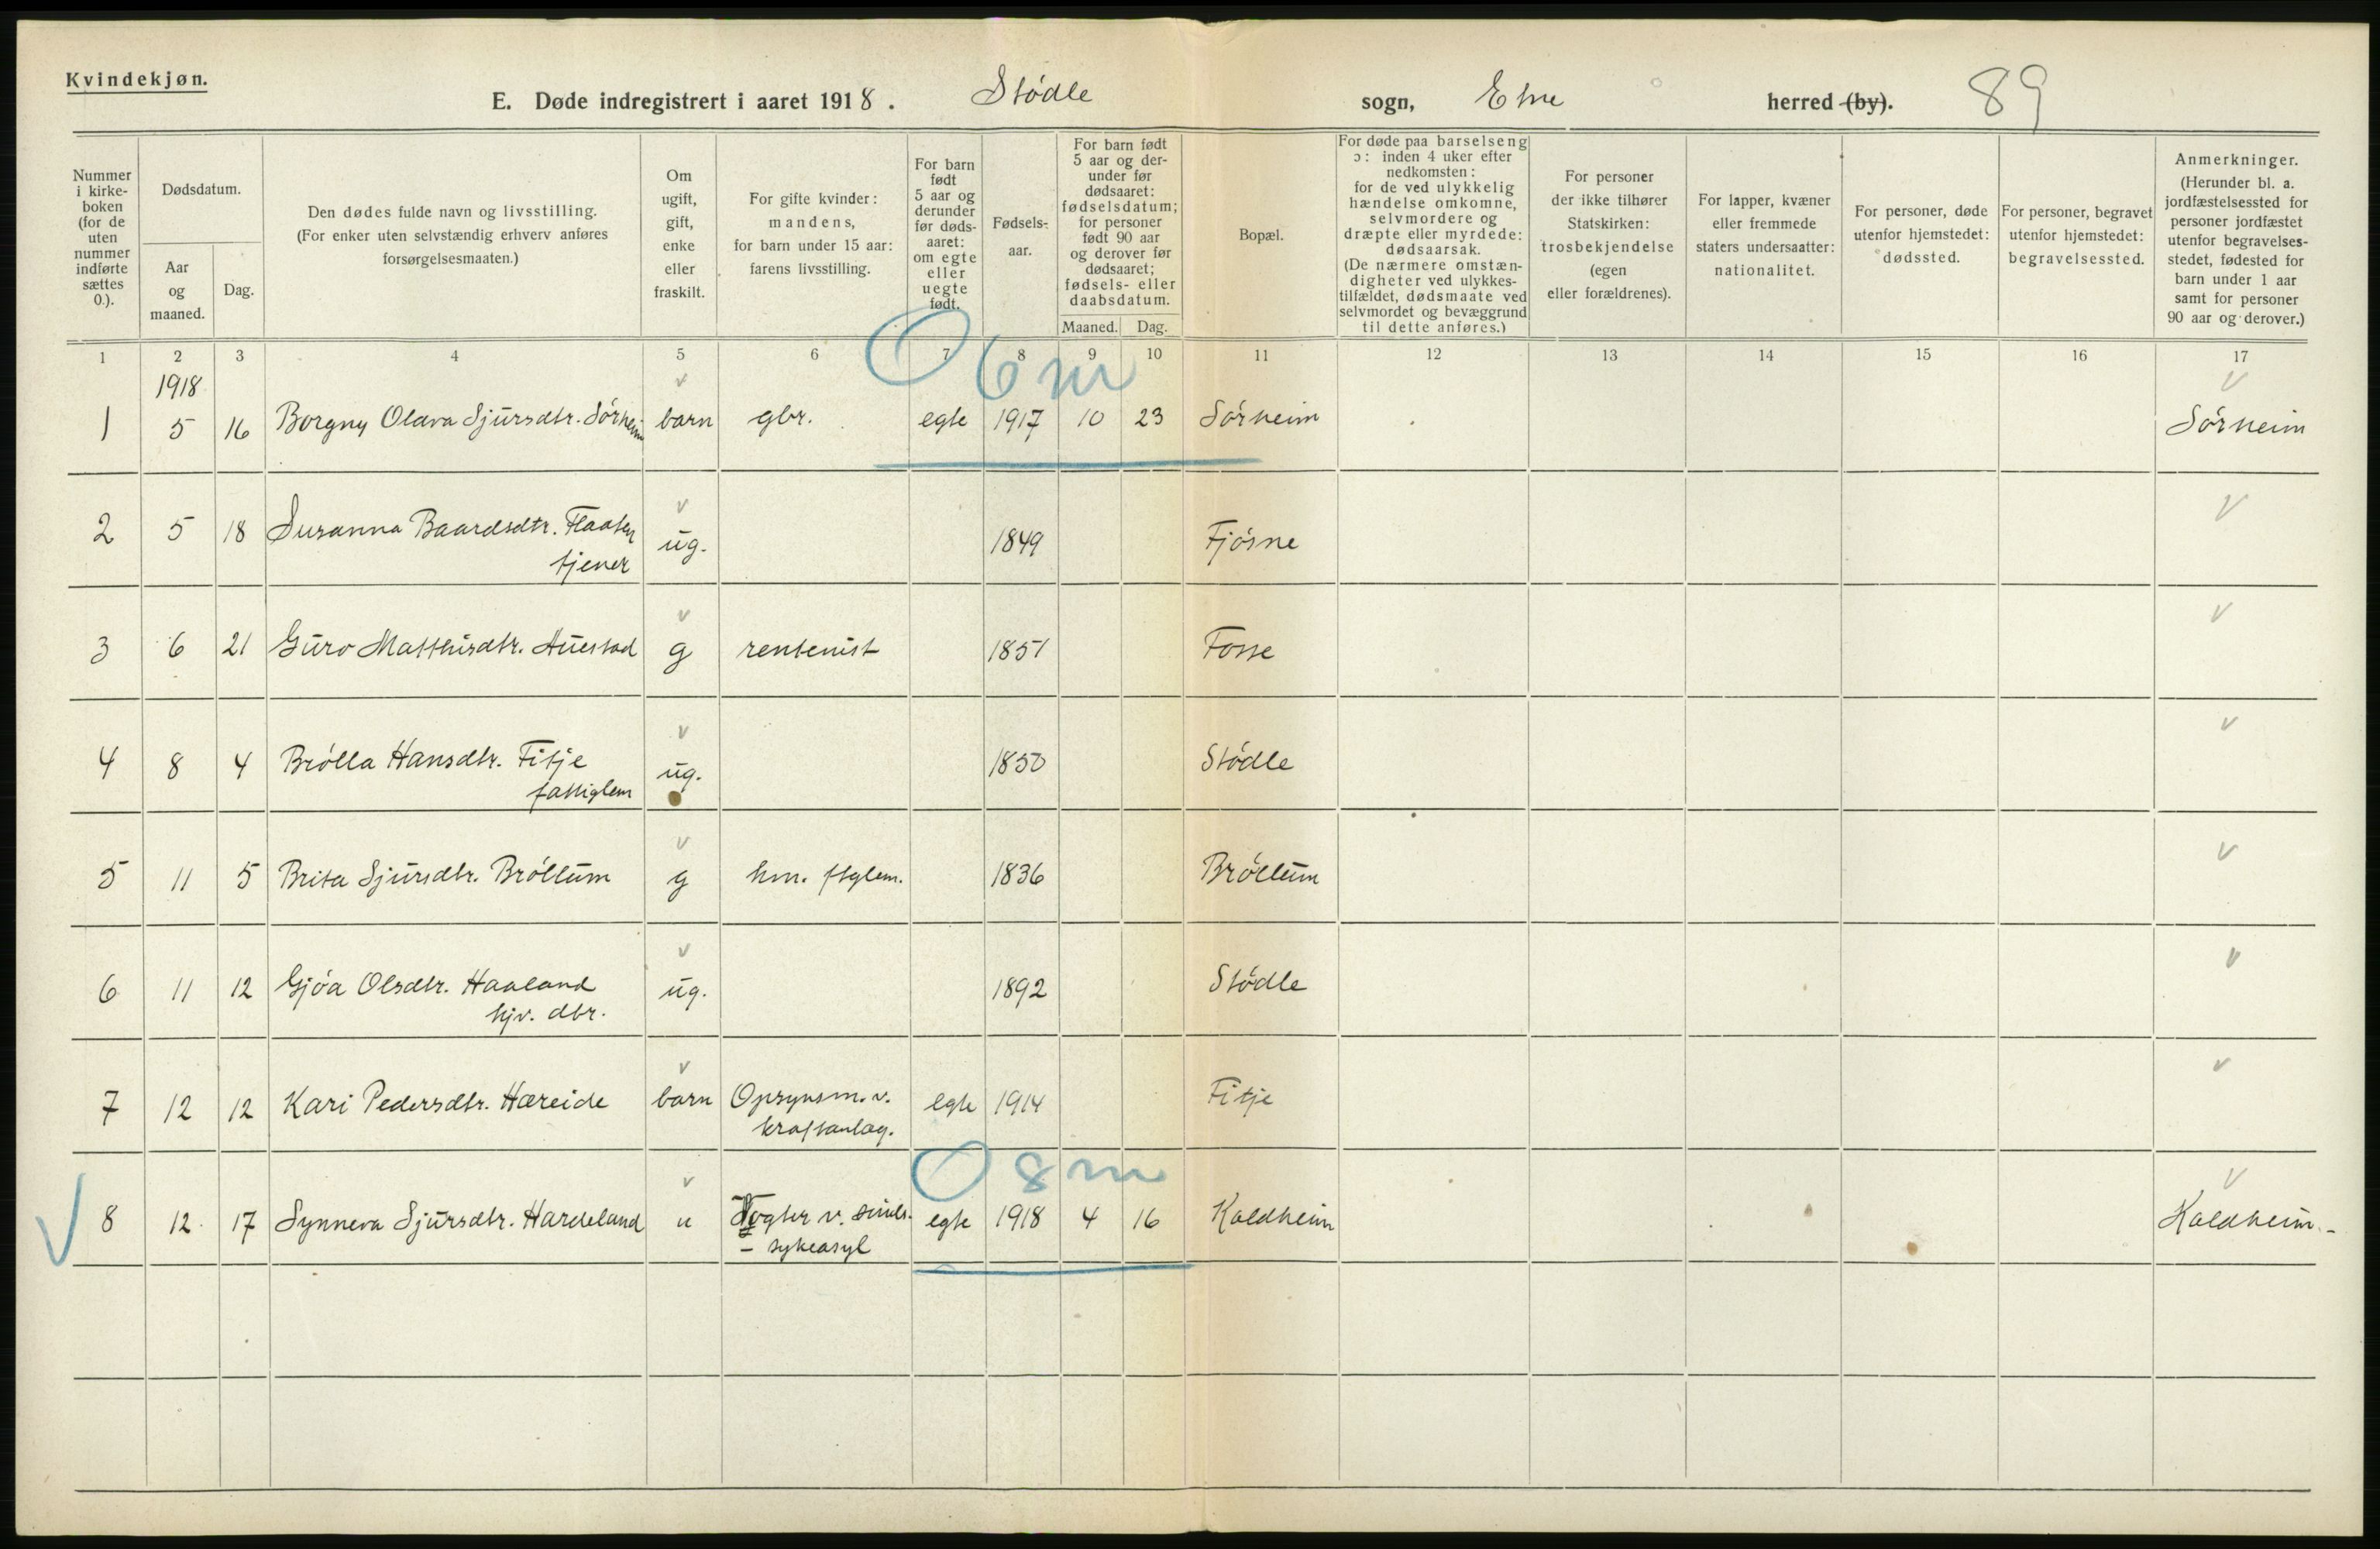 Kvindekjøn.
E. Døde indregistrert i aaret 1918. Stødle sogn, Etne herred (by). 89
Nummer i kirkeboken (for de uten nummer indførte sættes 0.).
Dødsdatum.
Aar og maaned.
Dag.
Den dødes fulde navn og livsstilling.
(For enker uten selvstændig erhverv anføres
forsørgelsesmaaten.)
Om ugift, gift, enke eller fraskilt.
For gifte kvinder: mandens, for barn under 15 aar: farens livsstilling.
For barn født 5 aar og derunder før dødsaaret: om egte eller uegte født.
Fødsels-aar.
For barn født 5 aar og derunder før dødsaaret: fødselsdatum; for personer født 90 aar og derover før dødsaaret; fødsels- eller daabsdatum.
Maaned. Dag.
Bopæl.
For døde paa barselseng ɔ: inden 4 uker efter nedkomsten: for de ved ulykkelig hændelse omkomne, selvmordere og dræpte eller myrdede: dødsaarsak. (De nærmere omstændigheter ved ulykkestilfældet, dødsmaate ved selvmordet og bevæggrund til dette anføres.)
For personer der ikke tilhører Statskirken: trosbekjendelse (egen eller forældrenes).
For lapper, kvæner eller fremmede staters undersaatter: nationalitet.
For personer, døde utenfor hjemstedet: dødssted.
For personer, begravet utenfor hjemstedet: begravelsessted.
Anmerkninger. (Herunder bl. a. jordfæstelsessted for personer jordfæstet utenfor begravelsesstedet, fødested for barn under 1 aar samt for personer 90 aar og derover.)
1 2 3 4 5 6 7 8 9 10 11 12 13 14 15 16 17
1918
0 6 m
1 5 16 Borgny Olava Sjursdtr. Sørheim barn gbr. egte 1917 10 23 Sørheim Sørheim
2 5 18 Susanna Baardsdtr. Flaaten ug. 1849 Fjøsne
tjener
3 6 21 Guro Matthisdtr. Auestad g rentenist 1851 Fosse
4 8 4 Brølla Hansdtr. Fitje ug. 1850 Stødle
fattiglem
5 11 5 Brita Sjursdtr. Brøllum g hm. ftglem. 1836 Brøllum
6 11 12 Gjøa Olsdtr. Haaland ug. 1892 Stødle
hjv. dtr.
7 12 12 Kari Pedersdtr. Hæreide barn Opsynsm. v. egte 1914 Fitje
kraftanlæg.
0 8 m
8 12 17 Synneva Sjursdtr. Hardeland u Vogter v. sinds- egte 1918 4 16 Kaldheim Kaldheim
sykeasyl